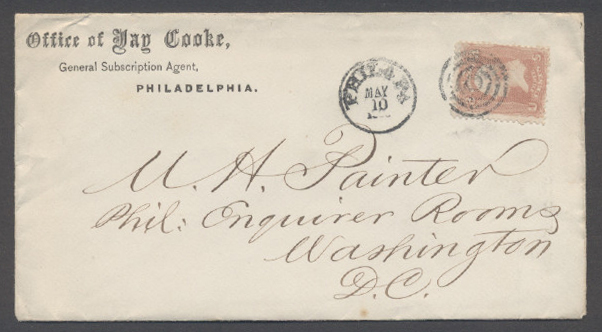 Office of Jay Cooke,
General Subscription Agent,
PHILADELPHIA.
PHILAD'A
MAY
10
U. H. Painter
Phil: Enquirer Rooms
Washington
D.C.